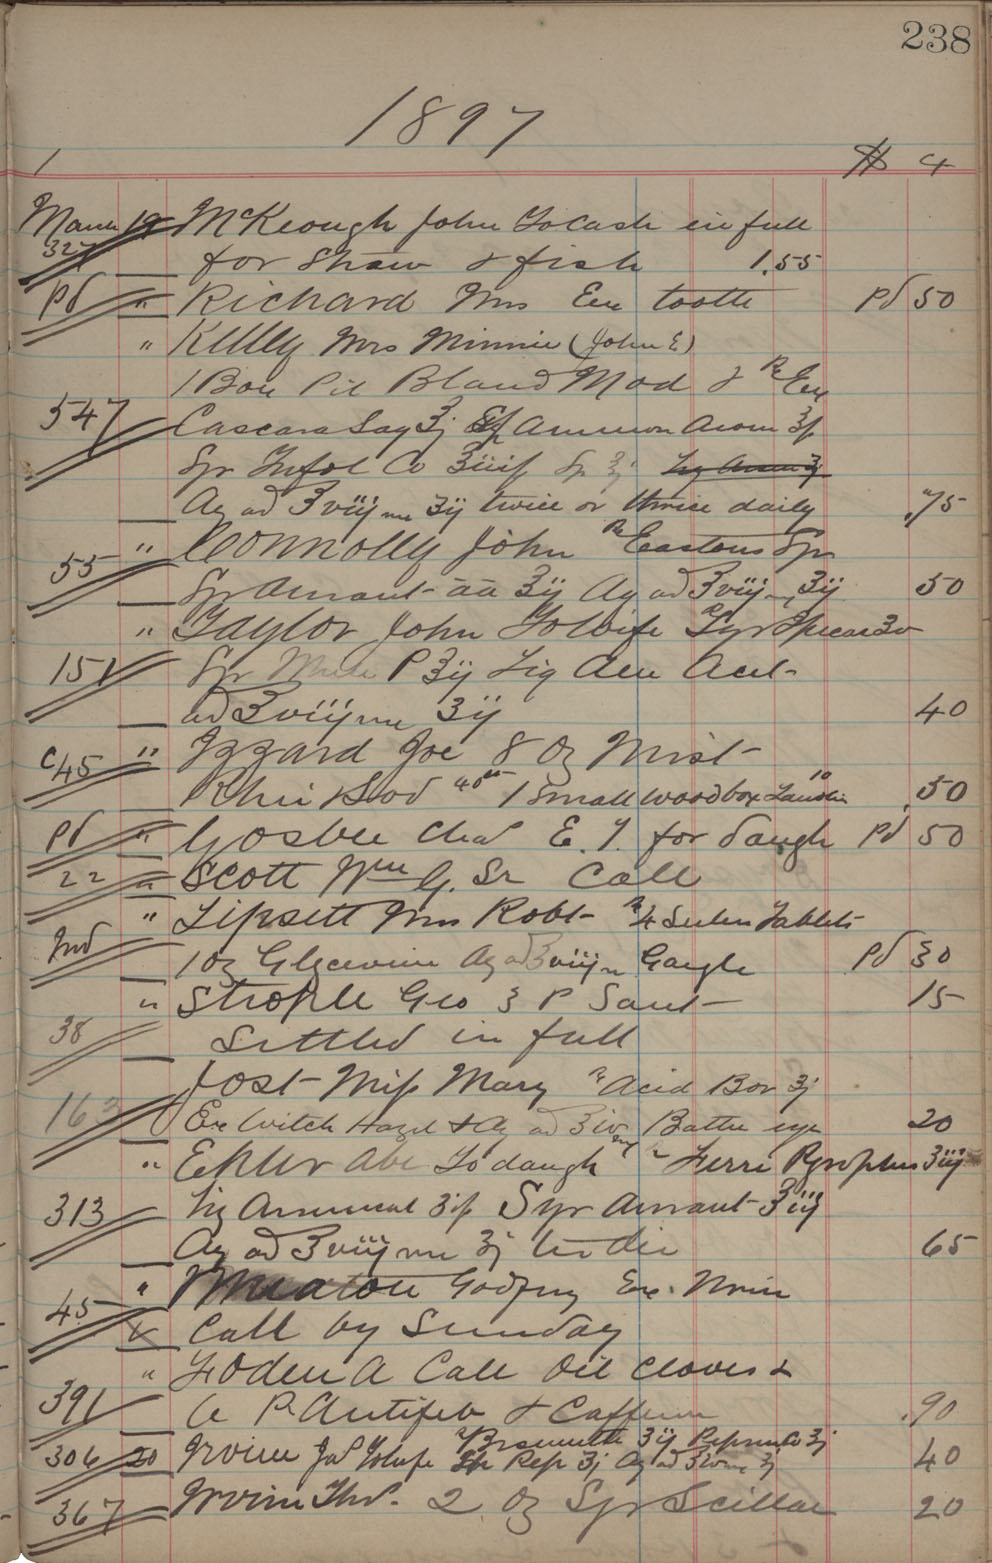 238
1897
1 $ ¢
March 19 McKeough John To Cash in full
327 for Straw & fish 1.55
Pd " Richard Mrs Exe tooth Pd 50
" Kelley Mrs Minnie (John E)
1 Box Pil Bland Mod & Rx Exe
547 Cascara Sag ʒj Sp Ammon Arom ʒf
Syr Co Sp ʒj
Aq ad ℥viij m ʒij twice or thrice daily .75
55 " Connolly John Rx Eastons Syr
Syr Aurant āā ʒij Aq ad ℥viij m ʒij 50
" Taylor John To Wife Syr Ipecac
151 Syr P ʒij Liq Am Acet
ad ℥viij m ʒij 40
C45 " Izzard Joe 8 oz Mist
Rhei Sod 40cts 1 Small wood box 10 50
Pd " Gosbee Chas E. T. for daugh Pd 50
22 " Scott Wm G. Sr Call
" Lipsett Mrs Robt Rx 4 Tablets
Ind 1 oz Glycerine Aq ad ℥viij m Gargle Pd 30
" Strople Geo 3 P Sant 15
38 Settled in full
Jost Miss Mary Rx Acid Bor ʒj
163 Ex Witch Hazel & Aq ad ℥iv Bathe eye 20
" Ekler Abe To daugh Rx Ferri Pyrophos ʒiij
313 Liq Syr Aurant ℥iij
Aq ad ℥viij m ʒj ter die 65
" Godfrey Exe.
45 Call by Sunday
" Foden A Call Oil Cloves &
391 6 P Antifeb & Caffein .90
Rx Bismuth ʒij
306 20 Irvine Jas To Wife Pep ʒj Aq ad ℥iv m ʒj 40
367 Irvine Thos. 2 oz Syr Scillae 20